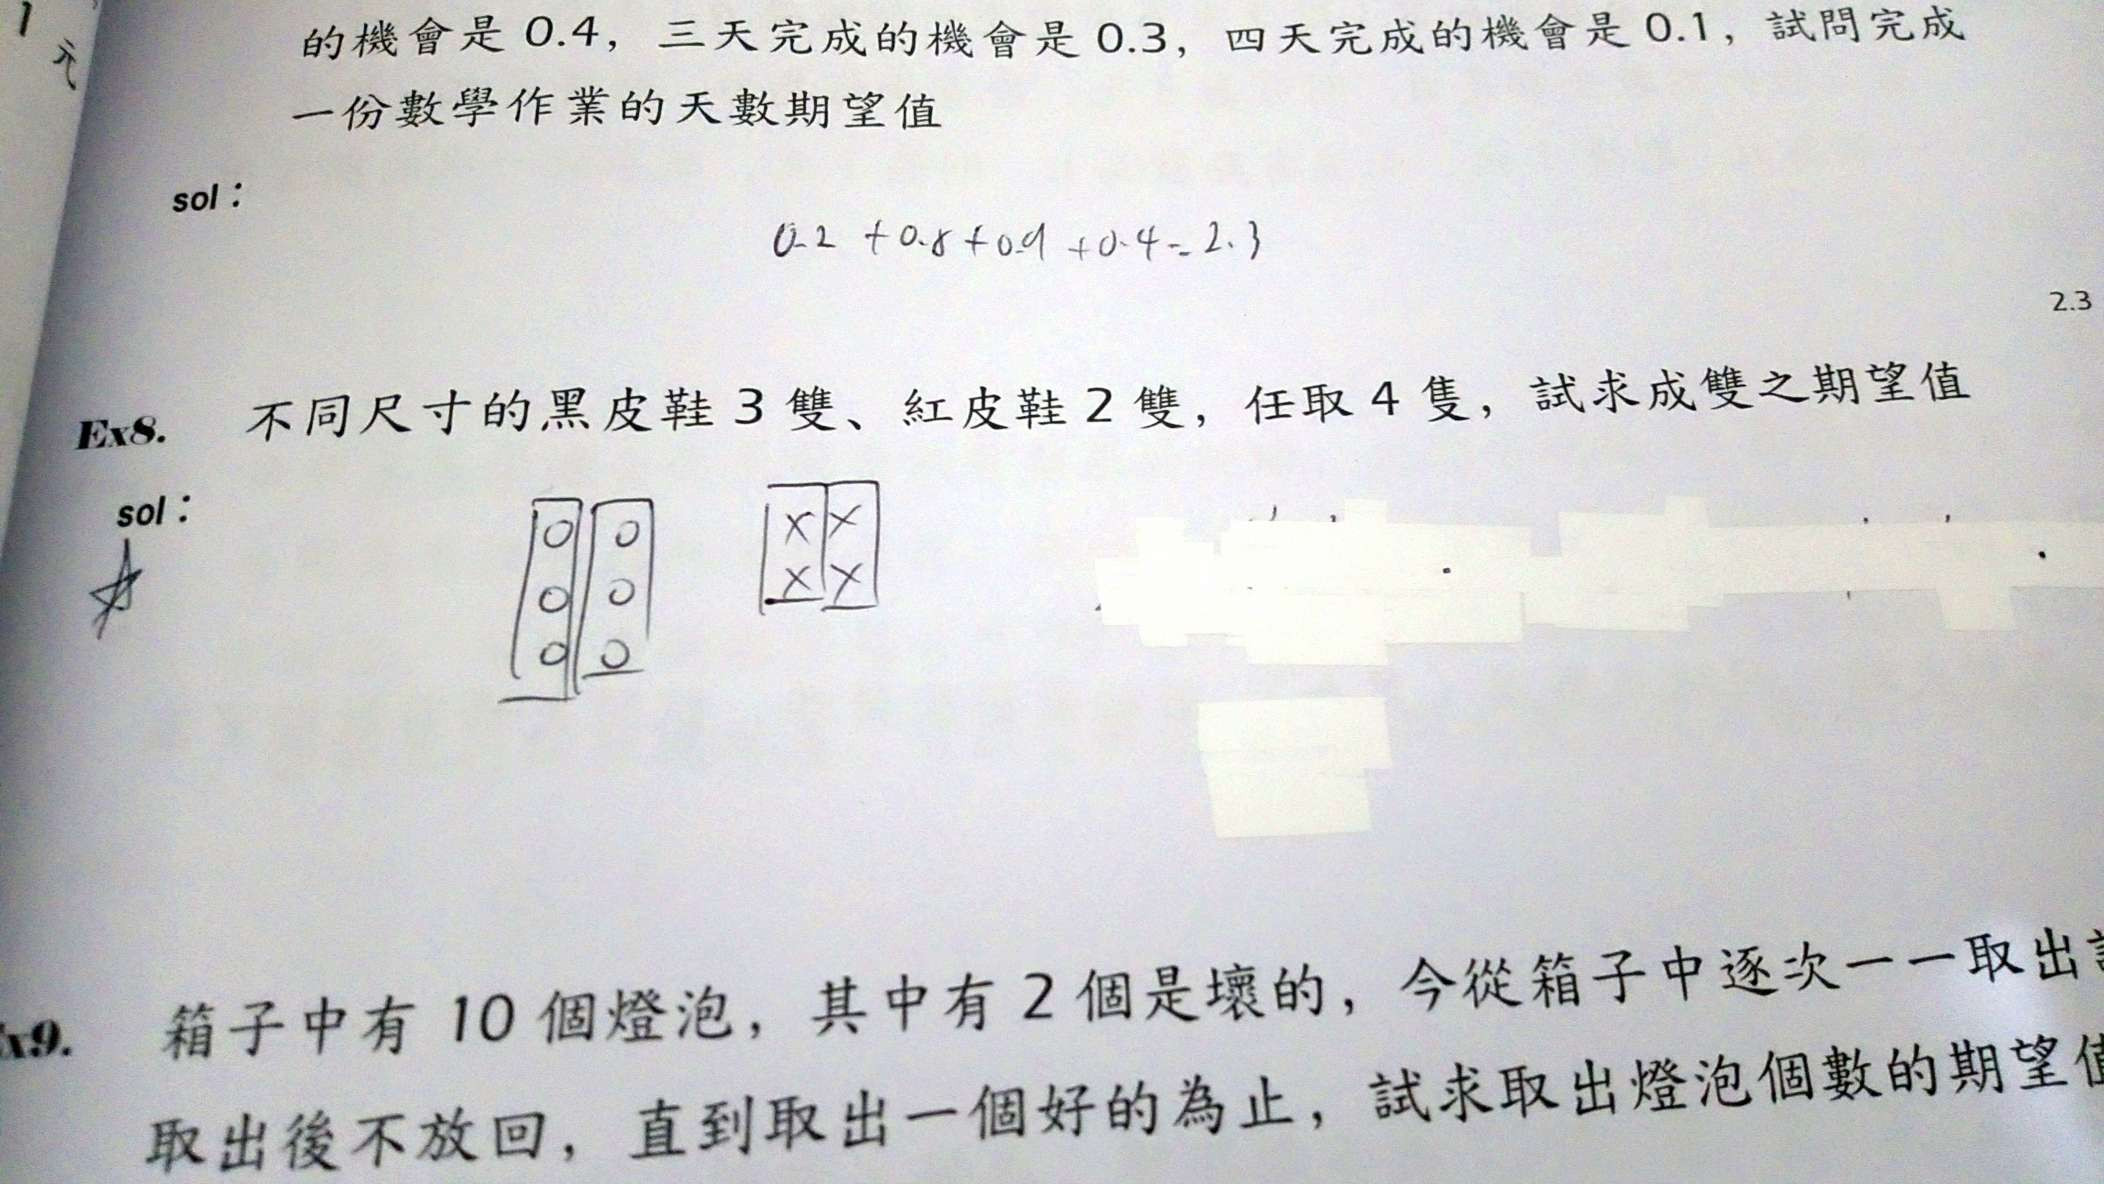 1
元
的機會是 0.4，三天完成的機會是 0.3，四天完成的機會是 0.1，試問完成
一份數學作業的天數期望值
sol：
0.2 + 0.8 + 0.9 + 0.4 = 2.3
2.3
Ex8. 不同尺寸的黑皮鞋 3 雙、紅皮鞋 2 雙，任取 4 隻，試求成雙之期望值
sol：
O O X X
O O X X
O O
x9. 箱子中有 10 個燈泡，其中有 2 個是壞的，今從箱子中逐次一一取出
取出後不放回，直到取出一個好的為止，試求取出燈泡個數的期望值